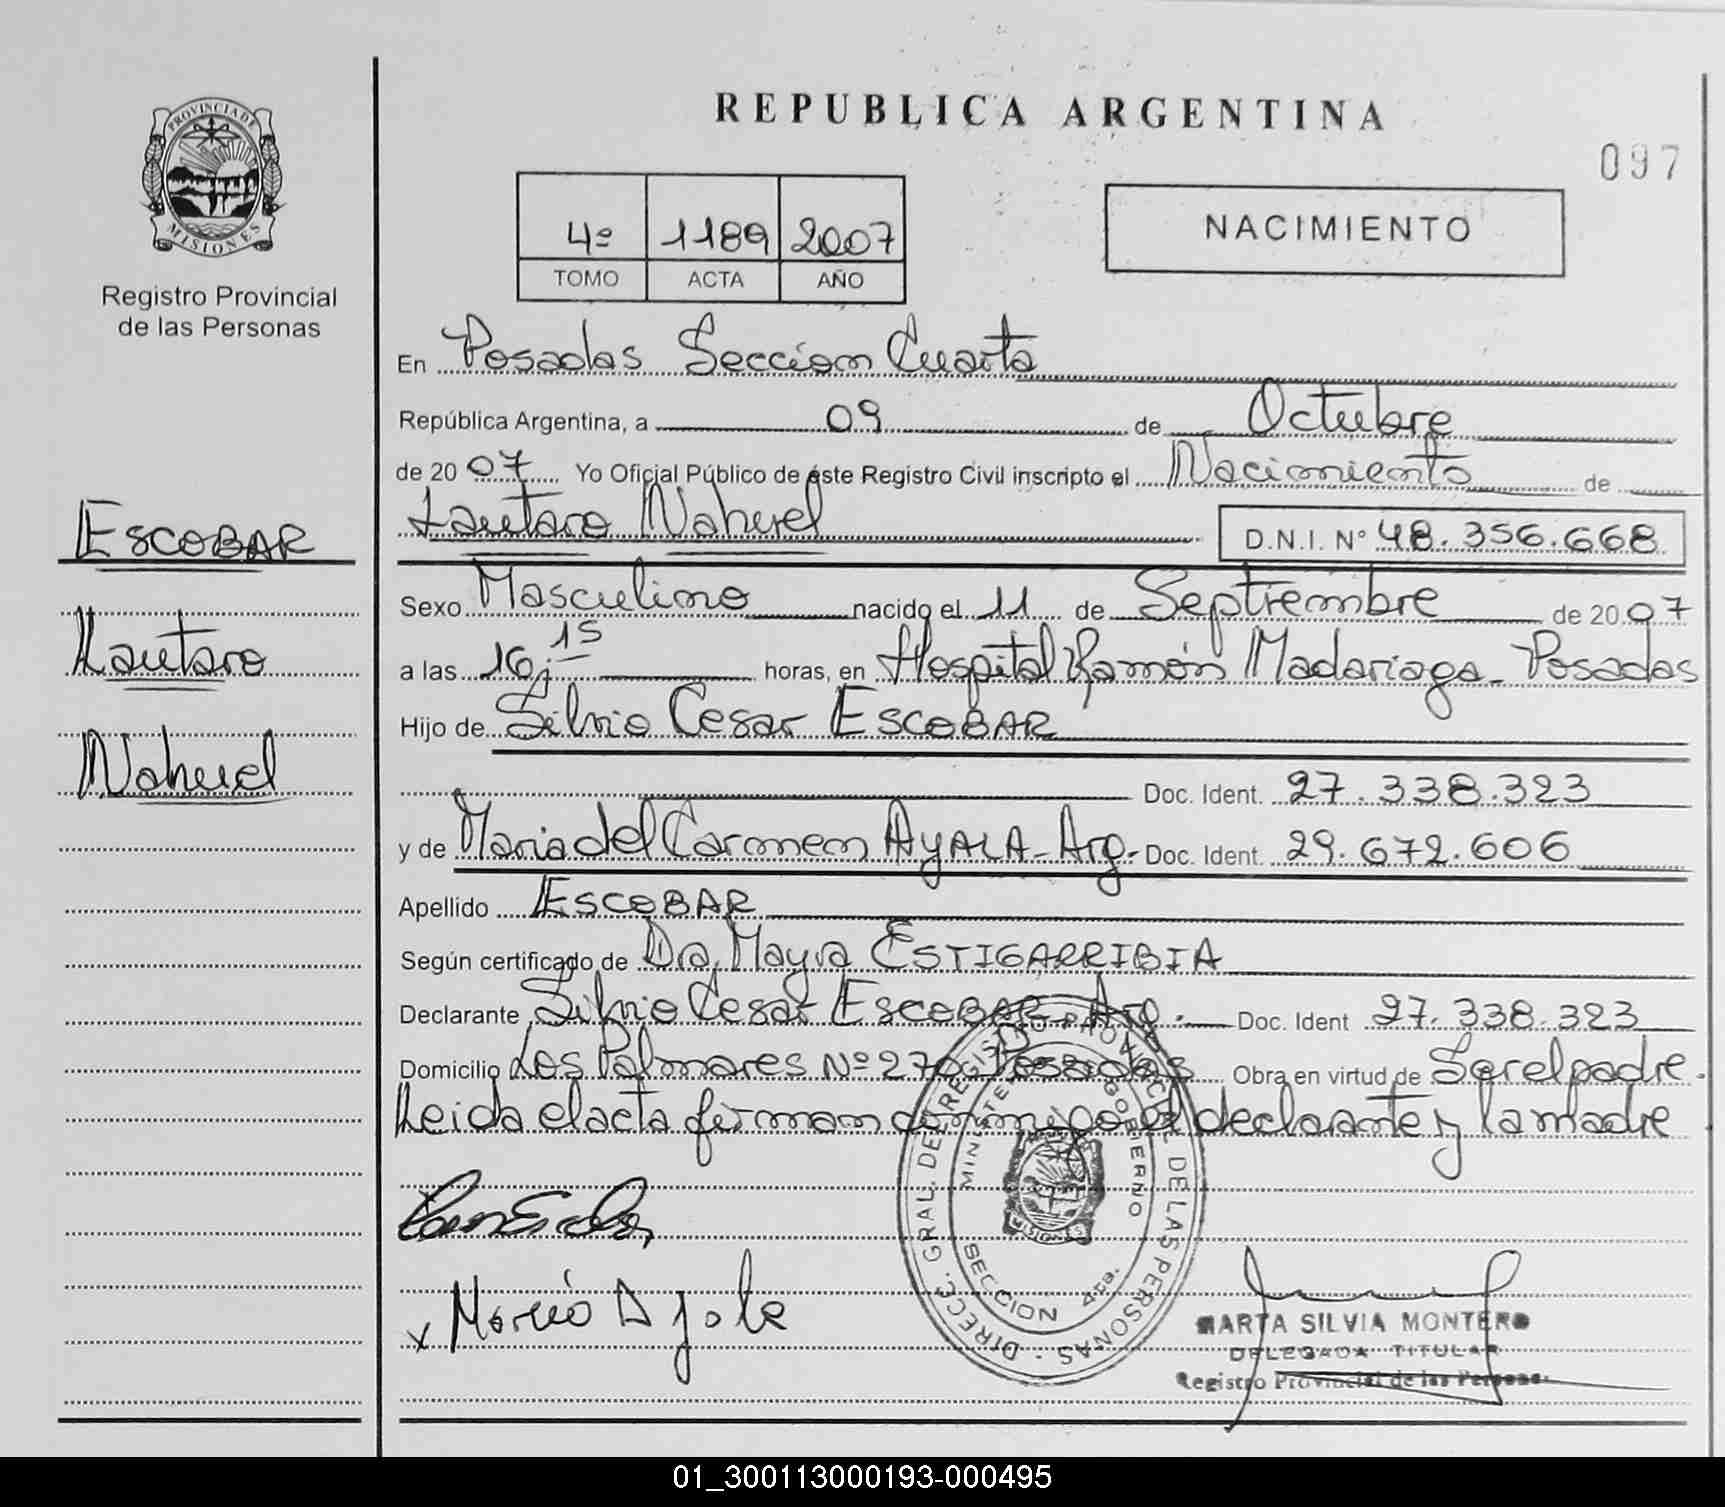 REPUBLICA ARGENTINA
097
PROVINCIA DE
MISIONES
Registro Provincial
de las Personas
4º 1189 2007
TOMO ACTA AÑO
NACIMIENTO
En Posadas Sección Cuarta
República Argentina, a 09 de Octubre
de 2007 Yo Oficial Público de éste Registro Civil inscripto el Nacimiento de
Lautaro Nahuel D.N.I. N° 48.356.668
ESCOBAR
Lautaro
Nahuel
Sexo Masculino nacido el 11 de Septiembre de 2007
a las 16;15 horas, en Hospital Ramón Madariaga - Posadas
Hijo de Silvio Cesar ESCOBAR
Doc. Ident. 27.338.323
y de Maria del Carmen AYALA - Arg. Doc. Ident. 29.672.606
Apellido ESCOBAR
Según certificado de Dra. Mayra ESTIGARRIBIA
Declarante Silvio Cesar ESCOBAR - Arg. Doc. Ident 27.338.323
Domicilio Los Palmares Nº 270 Posadas Obra en virtud de Ser el padre.
Leida el acta firman conmigo el declarante y la madre
DIRECC. GRAL. DEL REGISTRO PROVINCIAL DE LAS PERSONAS
MINISTERIO GOBIERNO
MISIONES
SECCION 4ta.
x Maria Ayala
MARTA SILVIA MONTERO
DELEGADA TITULAR
Registro Provincial de las Personas
01_300113000193-000495